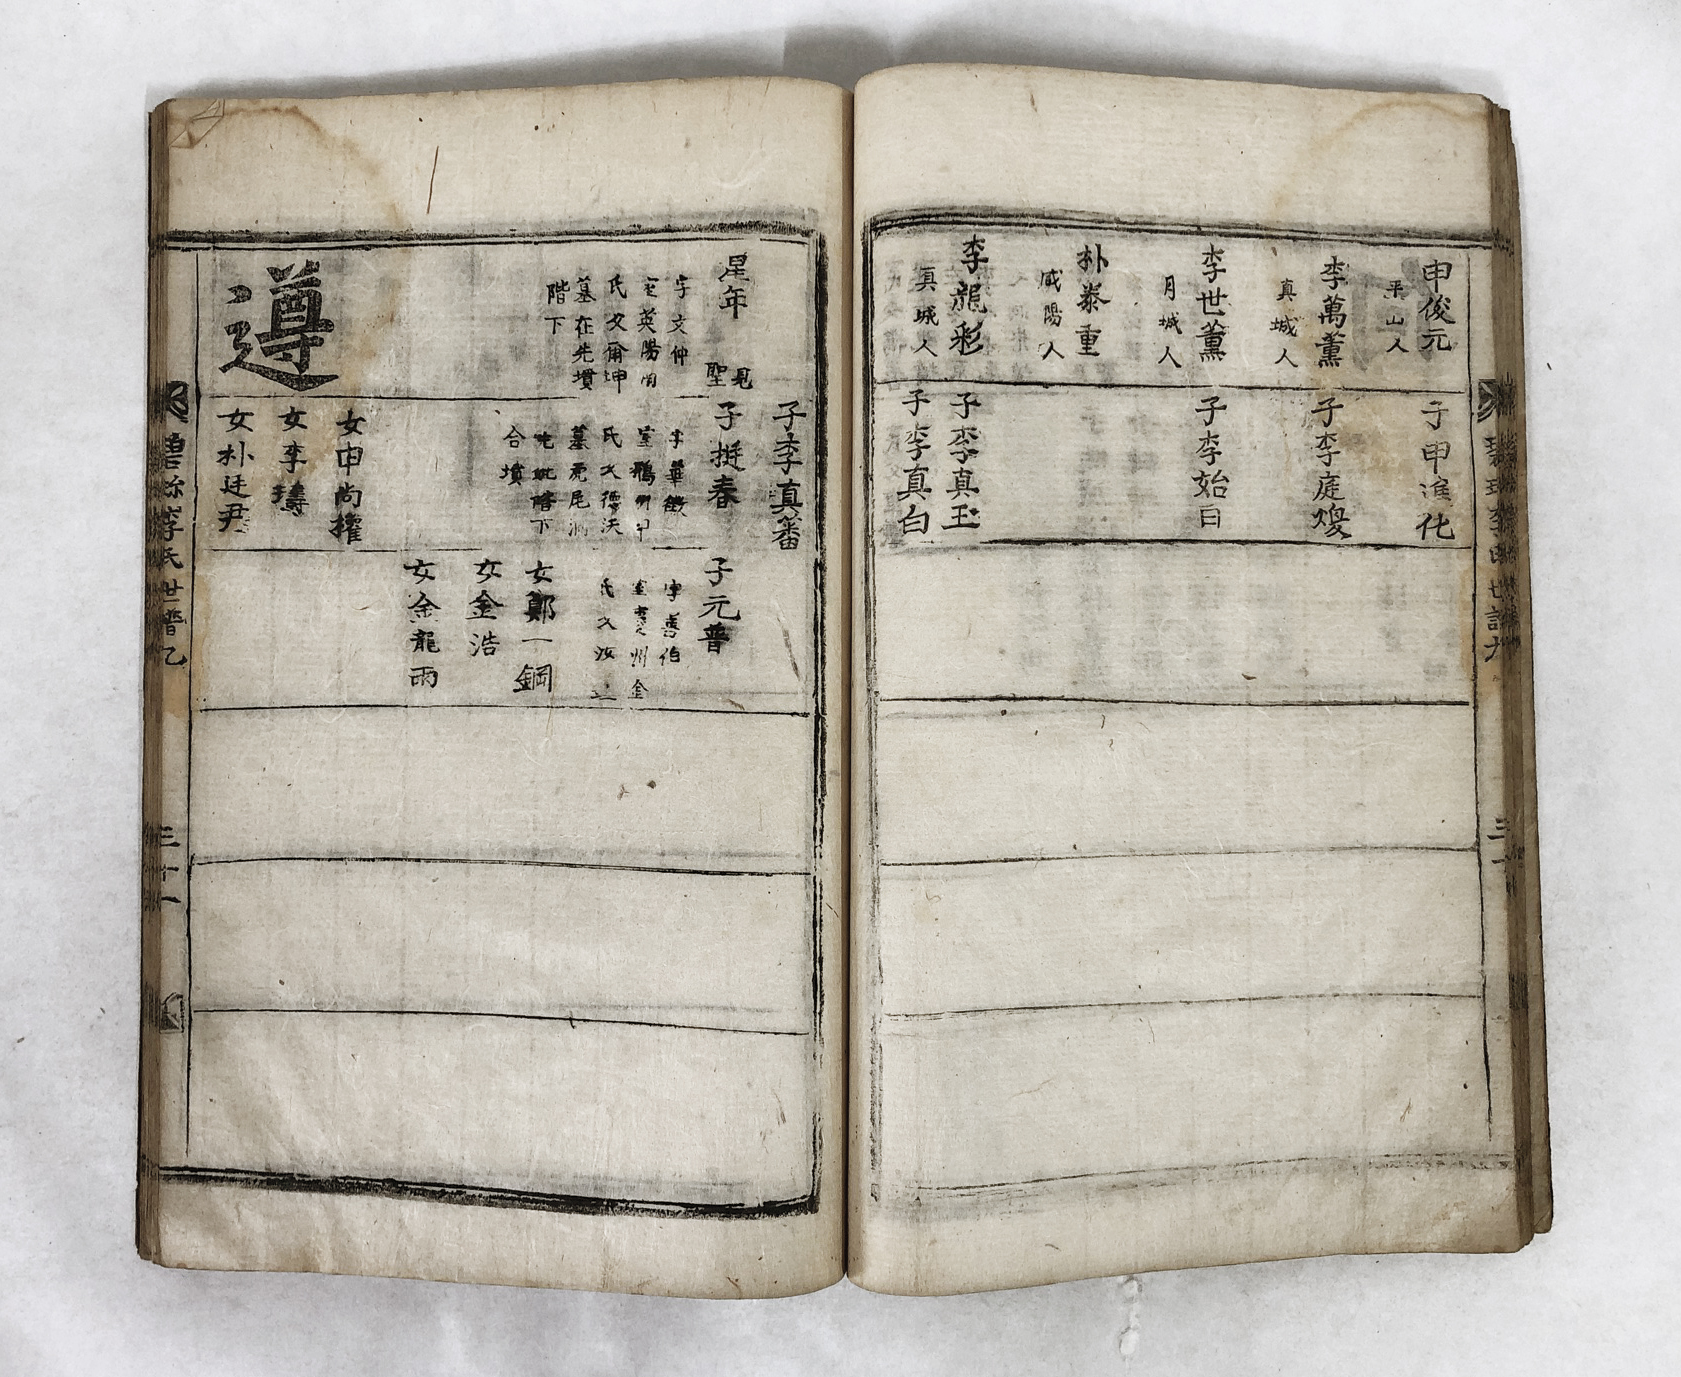 申俊元
平山人
李萬薰
真城人
李世薰
月城人
朴泰重
咸陽人
李龍彩
真城人
子申進化
子李庭煥
子李始白
子李真玉
子李真白
星年
見
聖
字文仲
室英陽南
氏父爾坤
墓在先墳
階下
遵
子李真蕃
子挺春
字華徵
氏父德沃
墓虎尾洞
合墳
女申尚權
女李璹
女朴廷尹
子元普
字善伯
氏父汝
女鄭一鋼
女金浩
女金龍雨
李氏世譜
三十一